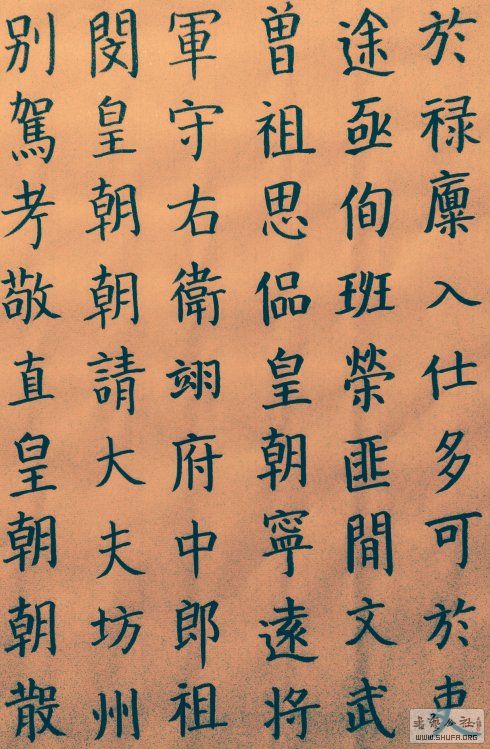 於禄廩入仕多可於
途亟侚班榮匪間文武
曽祖思偘皇朝寧遠将
軍守右衛翊府中郎祖
閔皇朝朝請大夫坊州
别駕考敬直皇朝朝散
WWW.SHUFA.ORG